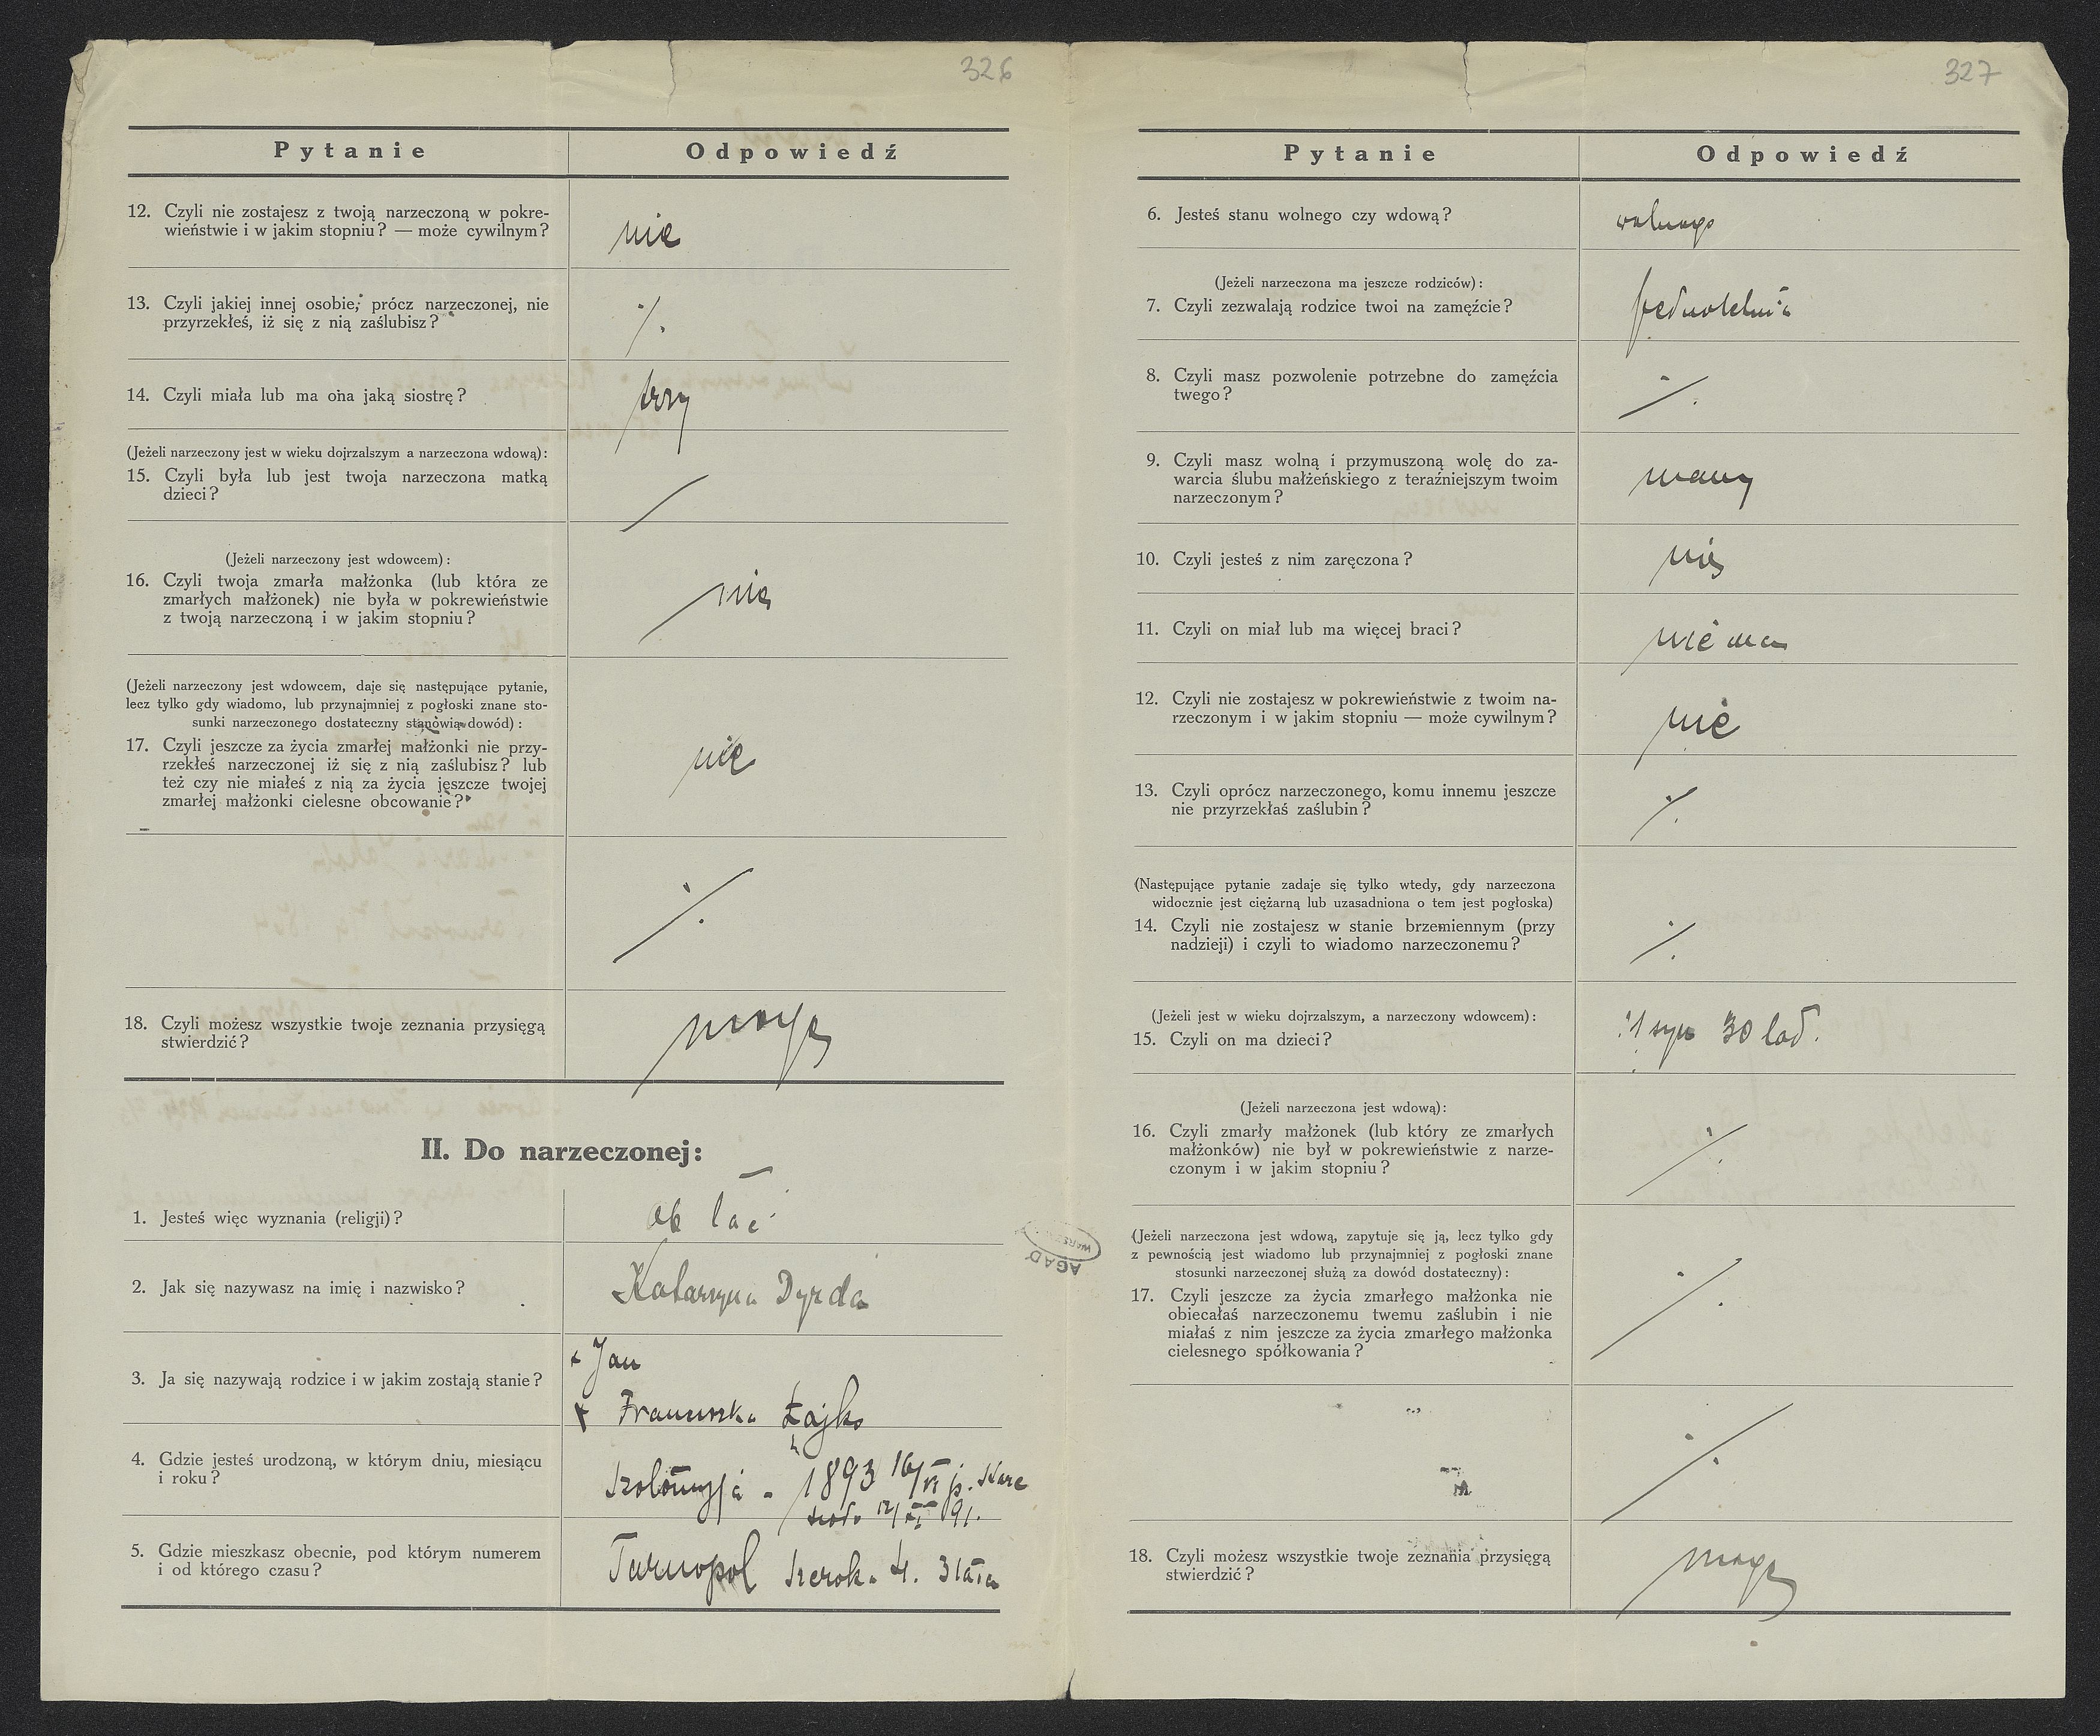 326
Pytanie
Odpowiedź
12. Czyli nie zostajesz z twoją narzeczoną w pokre-
wieństwie i w jakim stopniu? — może cywilnym?
nie
13. Czyli jakiej innej osobie, prócz narzeczonej, nie
przyrzekłeś, iż się z nią zaślubisz?
14. Czyli miała lub ma ona jaką siostrę?
trzy
(Jeżeli narzeczony jest w wieku dojrzalszym a narzeczona wdową):
15. Czyli była lub jest twoja narzeczona matką
dzieci?
(Jeżeli narzeczony jest wdowcem):
16. Czyli twoja zmarła małżonka (lub która ze
zmarłych małżonek) nie była w pokrewieństwie
z twoją narzeczoną i w jakim stopniu?
nie
(Jeżeli narzeczony jest wdowcem, daje się następujące pytanie,
lecz tylko gdy wiadomo, lub przynajmniej z pogłoski znane sto-
sunki narzeczonego dostateczny stanowią dowód):
17. Czyli jeszcze za życia zmarłej małżonki nie przy-
rzekłeś narzeczonej iż się z nią zaślubisz? lub
też czy nie miałeś z nią za życia jeszcze twojej
zmarłej małżonki cielesne obcowanie?
nie
18. Czyli możesz wszystkie twoje zeznania przysięgą
stwierdzić?
mogę
II. Do narzeczonej:
1. Jesteś więc wyznania (religji)?
ob łać
2. Jak się nazywasz na imię i nazwisko?
Katarzyna Dyrda
3. Ja się nazywają rodzice i w jakim zostają stanie?
+ Jan
+ Franciszka Łajko
4. Gdzie jesteś urodzoną, w którym dniu, miesiącu
i roku?
1893 16/VI
5. Gdzie mieszkasz obecnie, pod którym numerem
i od którego czasu?
Tarnopol 4. 3 lata
AGAD
327
Pytanie
Odpowiedź
6. Jesteś stanu wolnego czy wdową?
wolnego
(Jeżeli narzeczona ma jeszcze rodziców):
7. Czyli zezwalają rodzice twoi na zamęźcie?
pełnoletnia
8. Czyli masz pozwolenie potrzebne do zamęźcia
twego?
9. Czyli masz wolną i przymuszoną wolę do za-
warcia ślubu małżeńskiego z teraźniejszym twoim
narzeczonym?
mam
10. Czyli jesteś z nim zaręczona?
nie
11. Czyli on miał lub ma więcej braci?
nie ma
12. Czyli nie zostajesz w pokrewieństwie z twoim na-
rzeczonym i w jakim stopniu — może cywilnym?
nie
13. Czyli oprócz narzeczonego, komu innemu jeszcze
nie przyrzekłaś zaślubin?
(Następujące pytanie zadaje się tylko wtedy, gdy narzeczona
widocznie jest ciężarną lub uzasadniona o tem jest pogłoska)
14. Czyli nie zostajesz w stanie brzemiennym (przy
nadzieji) i czyli to wiadomo narzeczonemu?
(Jeżeli jest w wieku dojrzalszym, a narzeczony wdowcem):
15. Czyli on ma dzieci?
1 syn 30 lat.
(Jeżeli narzeczona jest wdową):
16. Czyli zmarły małżonek (lub który ze zmarłych
małżonków) nie był w pokrewieństwie z narze-
czonym i w jakim stopniu?
(Jeżeli narzeczona jest wdową, zapytuje się ją, lecz tylko gdy
z pewnością jest wiadomo lub przynajmniej z pogłoski znane
stosunki narzeczonej służą za dowód dostateczny):
17. Czyli jeszcze za życia zmarłego małżonka nie
obiecałaś narzeczonemu twemu zaślubin i nie
miałaś z nim jeszcze za życia zmarłego małżonka
cielesnego spółkowania?
18. Czyli możesz wszystkie twoje zeznania przysięgą
stwierdzić?
mogę